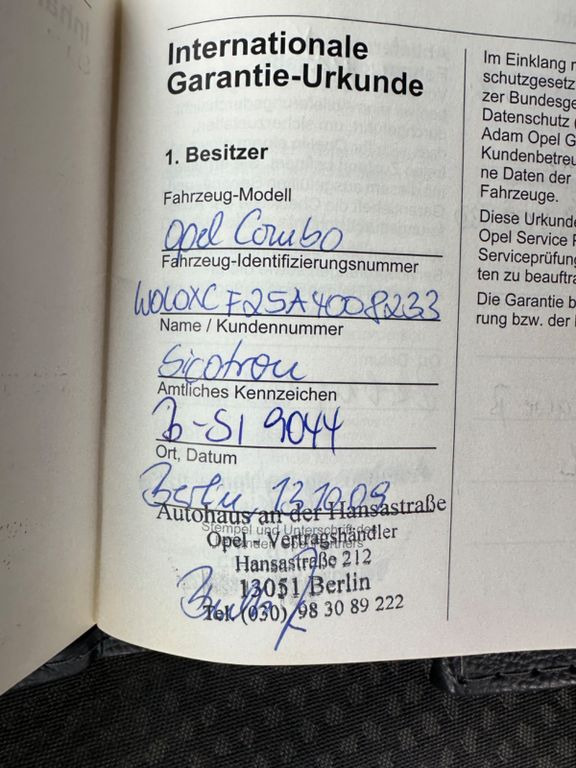 Internationale
Garantie-Urkunde
1. Besitzer
Fahrzeug-Modell
Opel Combo
Fahrzeug-Identifizierungsnummer
W0L0XCF25A4008233
Name / Kundennummer
Sicotron
Amtliches Kennzeichen
B-SI 9044
Ort, Datum
Berlin 13.10.09
Autohaus an der Hansastraße
Stempel und Unterschrift des
Opel - Vertragshändler
Hansastraße 212
13051 Berlin
Tel. (030) 98 30 89 222
Im Einklang
schutzgesetz
zer Bundesge
Datenschutz
Adam Opel G
Kundenbetreu
ne Daten der
Fahrzeuge.
Diese Urkunde
Opel Service
Serviceprüfung
ten zu beauftra
Die Garantie b
rung bzw. der